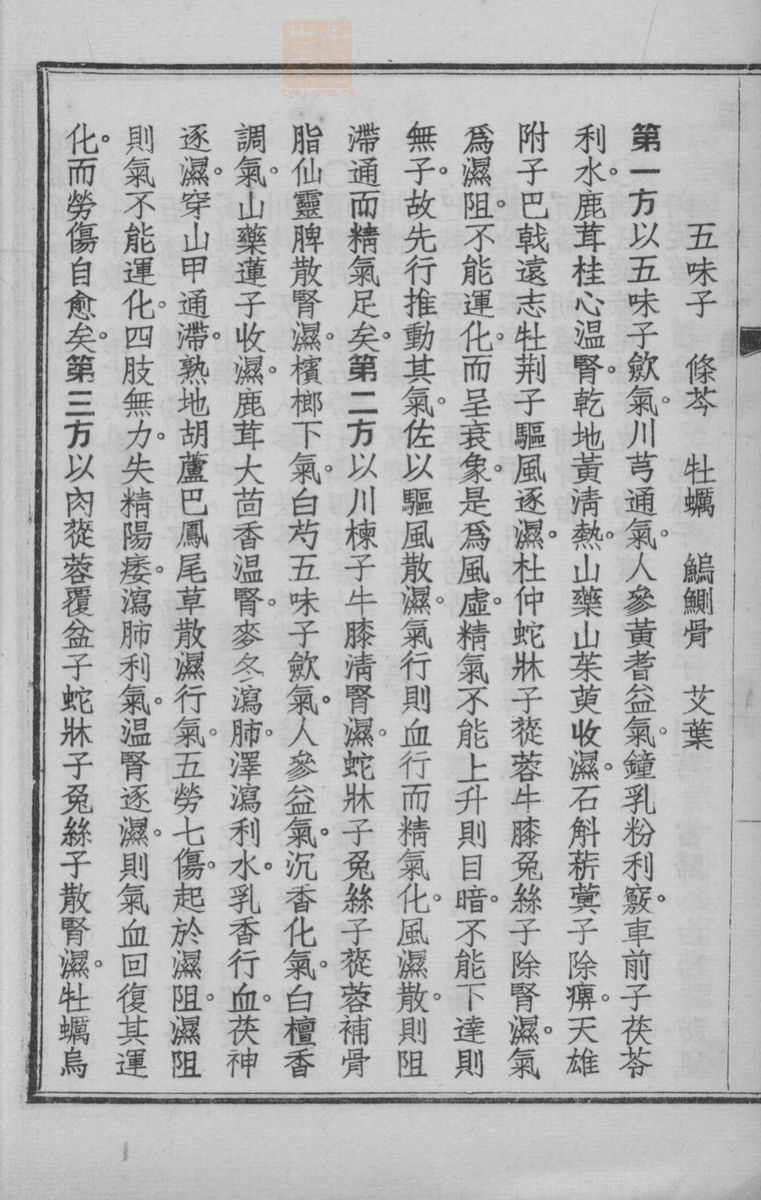 五味子　條芩　牡蠣　鰞鰂骨　艾葉
第一方以五味子歛氣。川芎通氣。人參黃耆益氣。鐘乳粉利竅。車前子茯苓
利水。鹿茸桂心温腎。乾地黃淸熱。山藥山茱萸收濕。石斛菥蓂子除痹。天雄
附子巴戟遠志牡荆子驅風逐濕。杜仲蛇牀子蓯蓉牛膝兔絲子除腎濕。氣
爲濕阻。不能運化。而呈衰象。是爲風虛。精氣不能上升則目暗。不能下達則
無子。故先行推動其氣。佐以驅風散濕。氣行則血行而精氣化。風濕散。則阻
滯通而精氣足矣。第二方以川楝子牛膝淸腎濕。蛇牀子兔絲子蓯蓉補骨
脂仙靈脾散腎濕。檳榔下氣。白芍五味子歛氣。人參益氣。沉香化氣。白檀香
調氣。山藥蓮子收濕。鹿茸大茴香温腎。麥冬瀉肺。澤瀉利水。乳香行血。茯神
逐濕。穿山甲通滯。熟地胡蘆巴鳳尾草散濕行氣。五勞七傷。起於濕阻。濕阻
則氣不能運化。四肢無力。失精陽痿。瀉肺利氣。温腎逐濕。則氣血回復其運
化。而勞傷自愈矣。第三方以肉蓯蓉覆盆子蛇牀子兔絲子散腎濕。牡蠣烏